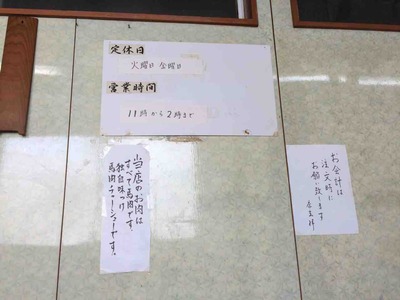 定休日
火曜日 金曜日
営業時間
11時から2時まで
当店のお肉は
すべて馬肉です。
独自味つけ
馬肉チャーシューです。
お会計は
注文時に
お願い致します